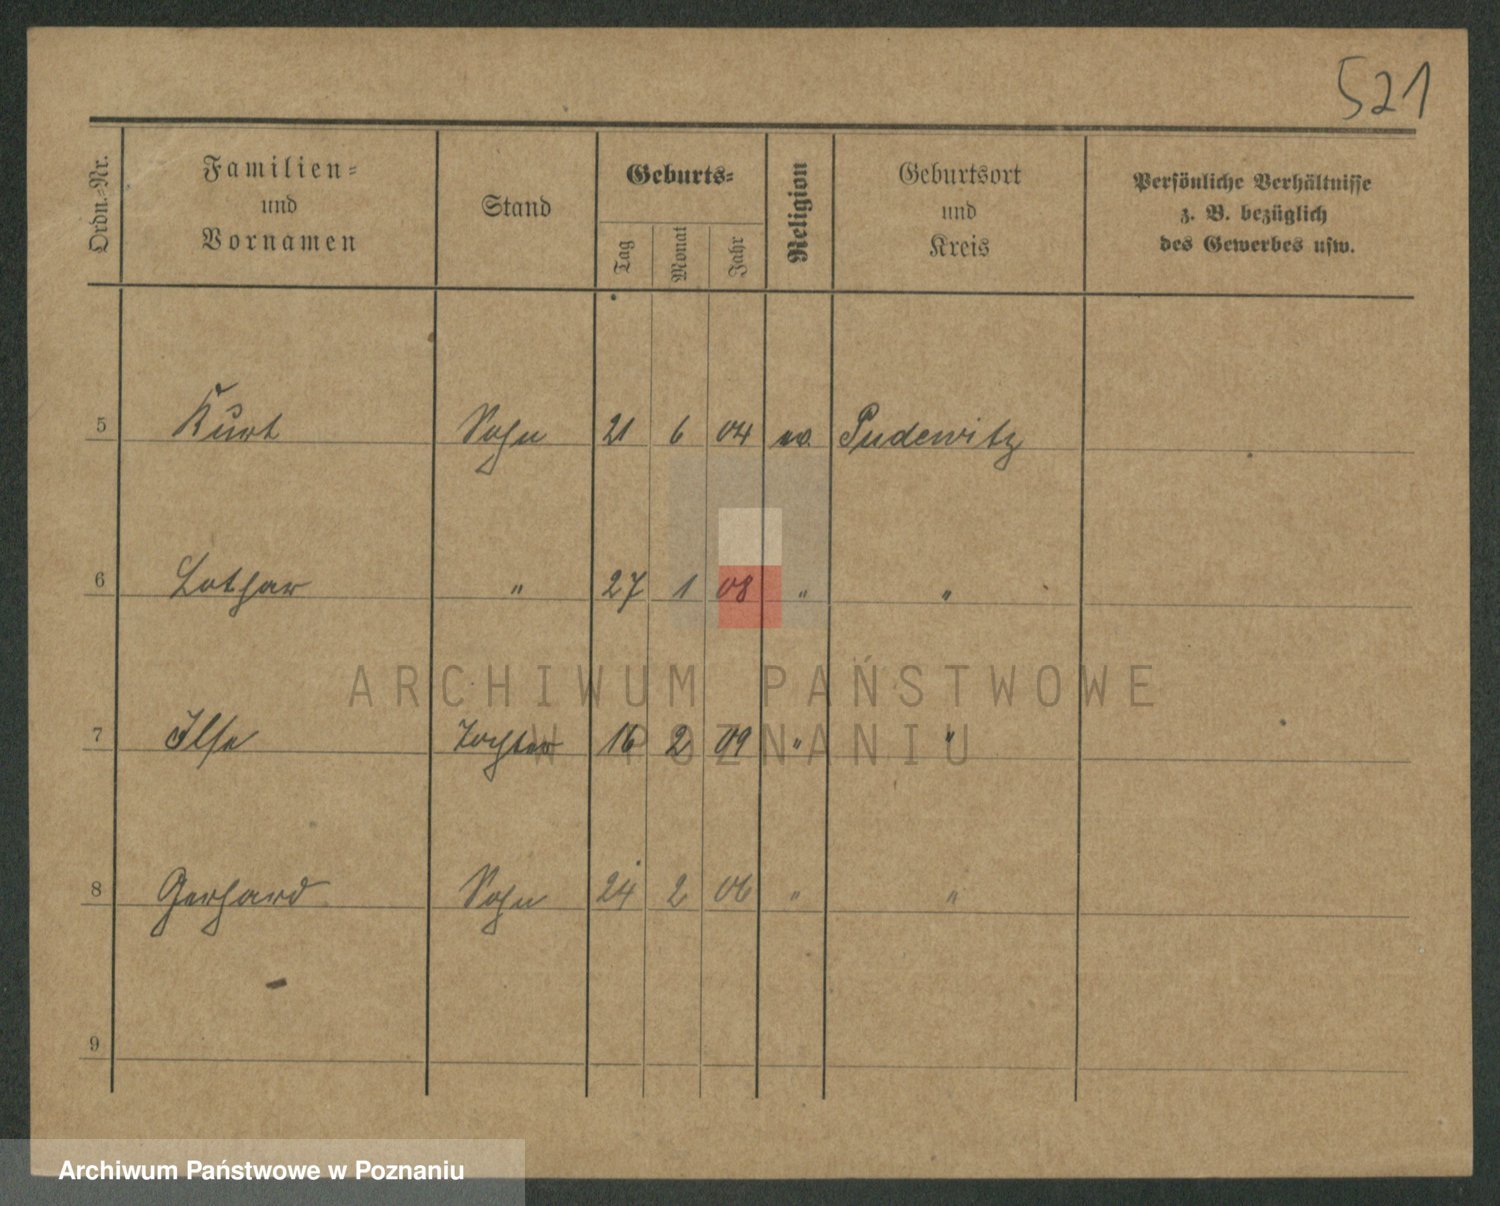 521
Ordn.-Nr.
Familien-
und
Vornamen
Stand
Geburts-
Tag
Monat
Jahr
Religion
Geburtsort
und
Kreis
Persönliche Verhältnisse
z. B. bezüglich
des Gewerbes usw.
5 Kurt Sohn 21 6 04 ev. Pudewitz
6 Lothar " 27 1 08 " "
ARCHIWUM PAŃSTWOWE
W POZNANIU
7 Ilse Tochter 16 2 09 " "
8 Gerhard Sohn 24 2 06 " "
9
Archiwum Państwowe w Poznaniu